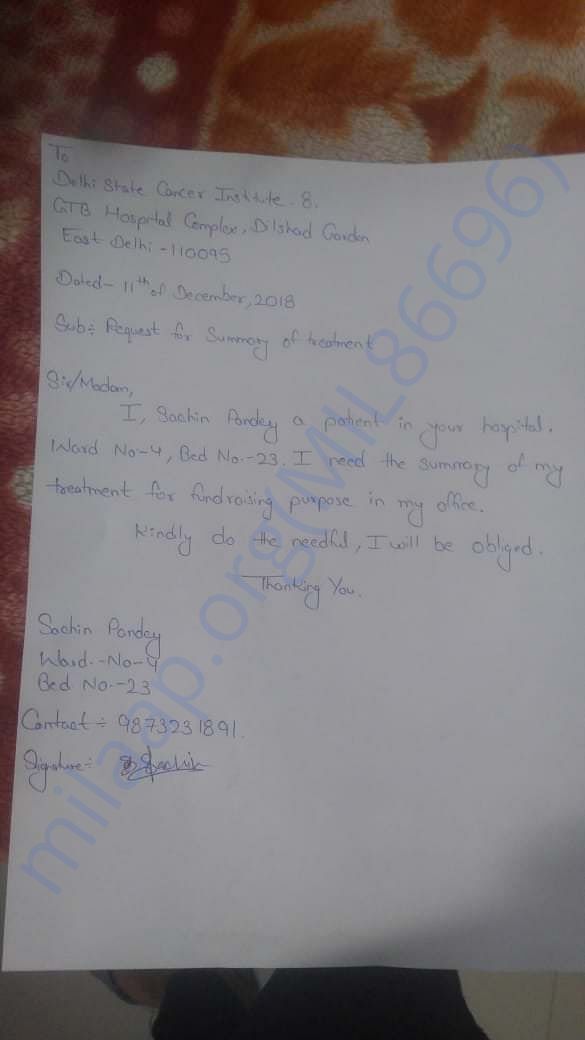 To
Delhi State Cancer Institute. 8.
GTB Hospital Complex, Dilshad Garden
East Delhi - 110095
Dated- 11th of December, 2018
Sub:- Request for Summary of treatment
Sir/Madam,
I, Sachin Pandey a patient in your hospital.
Ward No-4, Bed No.-23. I need the summary of my
treatment for fundraising purpose in my office.
Kindly do the needful, I will be obliged.
Thanking You.
Sachin Pandey
Ward.-No-4
Bed No.-23
Contact :- 9873231891.
Signature:- Sachin
milaap.org(MIL86696)